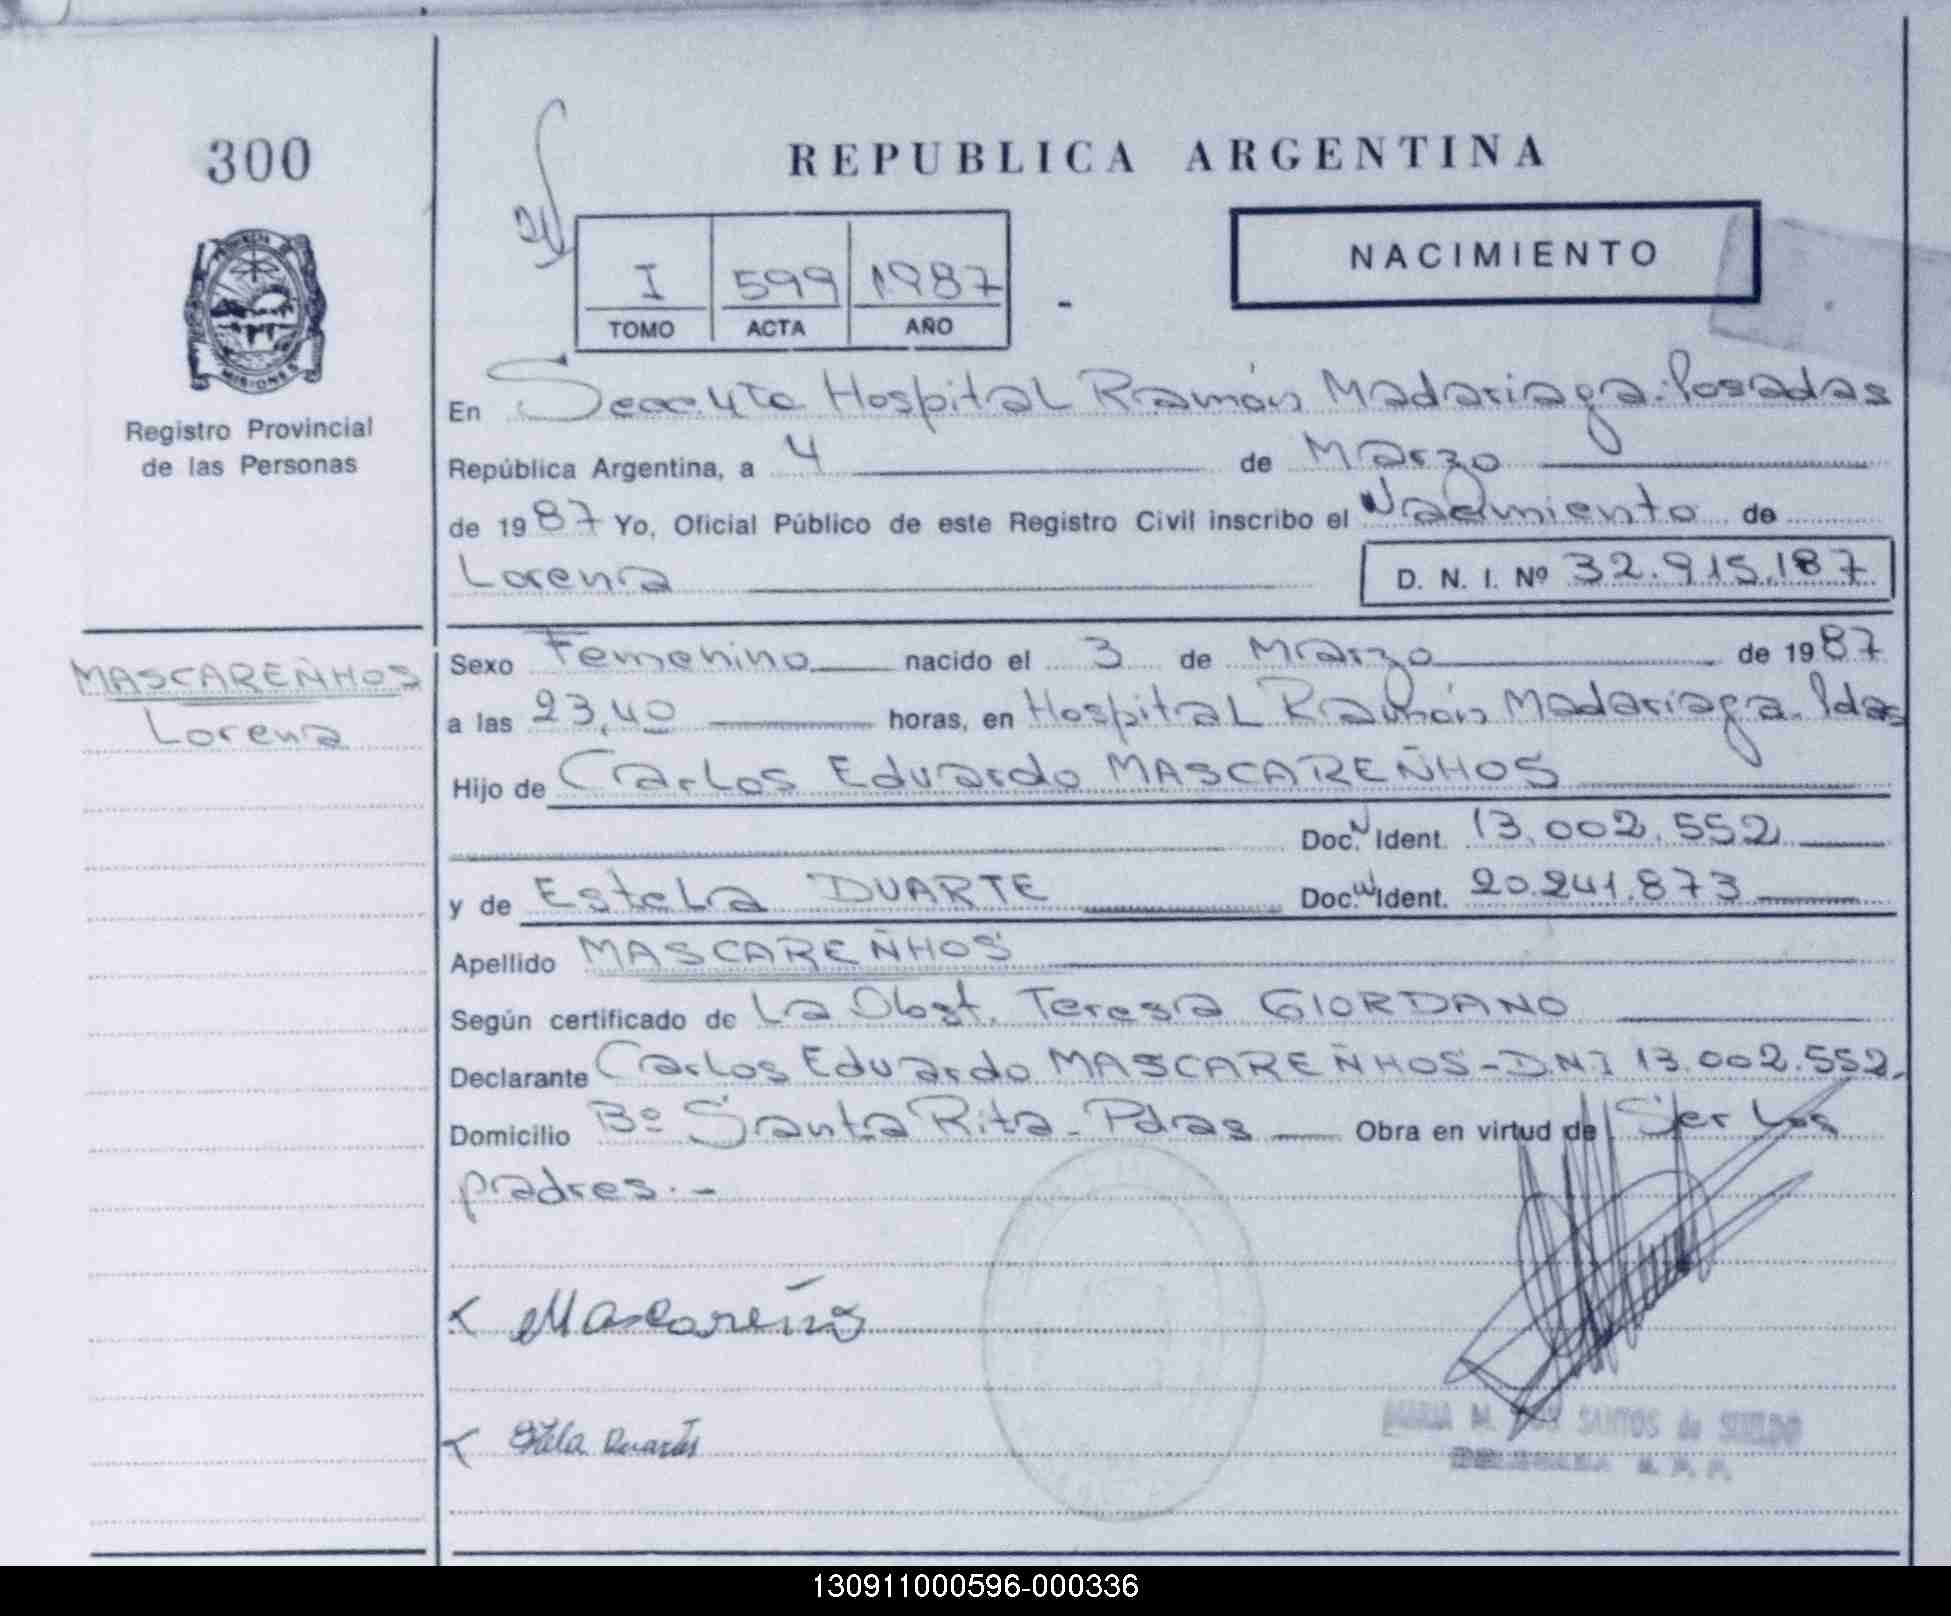 300
REPUBLICA ARGENTINA
NACIMIENTO
I 599 1987
TOMO ACTA AÑO
MISIONES
Registro Provincial
de las Personas
En Hospital Ramón Madariaga. Posadas
República Argentina, a 4 de Marzo
de 1987 Yo, Oficial Público de este Registro Civil inscribo el Nacimiento de
Lorena D. N. I. Nº 32.915.187
MASCAREÑHOS
Lorena
Sexo Femenino nacido el 3 de Marzo de 1987
a las 23,40 horas, en Hospital Ramón Madariaga. Pdas
Hijo de Carlos Eduardo MASCAREÑHOS
Doc. N Ident. 13.002.552
y de Estela DUARTE Doc. N Ident. 20.241.873
Apellido MASCAREÑHOS
Según certificado de La Obst. Teresa GIORDANO
Declarante Carlos Eduardo MASCAREÑHOS - D.N.I 13.002.552.
Domicilio Bº Santa Rita - Pdas Obra en virtud de Ser Los
padres.-
Mascareños
Estela Duarte
MARIA M. SANTOS de SUELDO
130911000596-000336